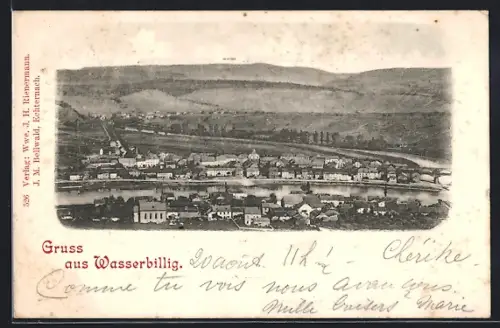 526 Verlag: Wwe. J. H. Rienermann.
J. M. Bellwald, Echternach.
Gruss
aus Wasserbillig.
20 août 11h½ Chérike
Comme tu vois nous avançons
Mille baisers Marie